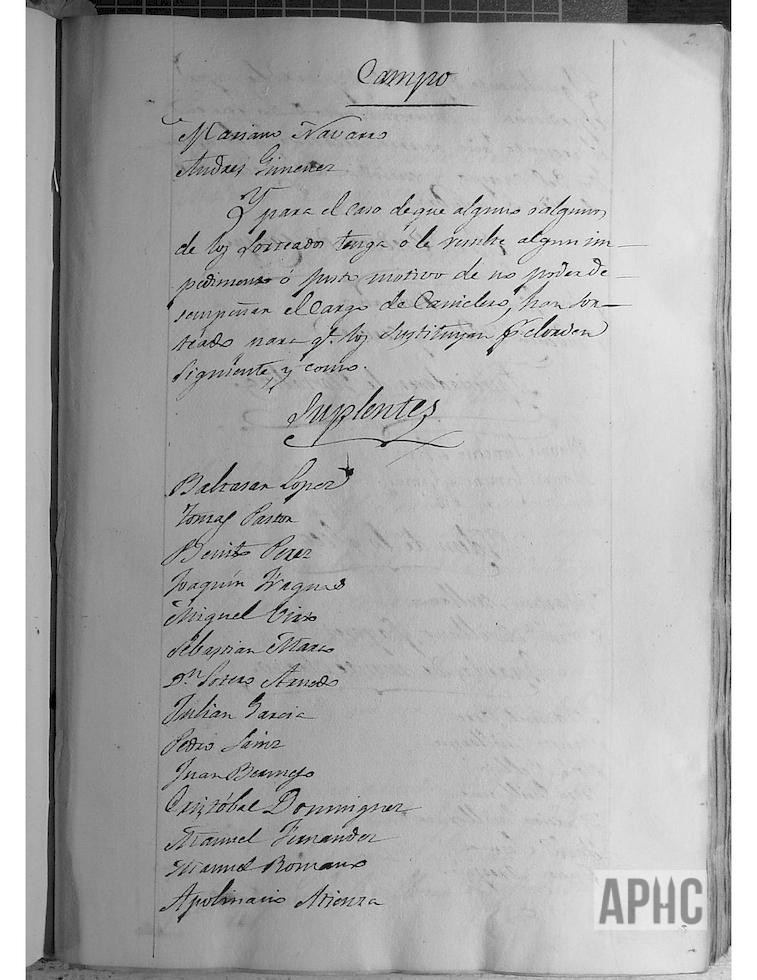 2.
Campo
Mariano Navarro
Andres Gimenez
Y para el caso de que alguno o algunos
de los Sorteados tenga ó le resulte algun im-
pedimento ó justo motivo de no poder de-
sempeñar el Cargo de Caniclero, han Sor-
teado para qe. los Sustituyan pr. el orden
Siguiente, y como.
Suplentes
Baltasar Lopez
Tomas Pastor
Benito Perez
Joaquin
Miguel
Sebastian Marco
Dn. Sotero Arnedo
Julian Garcia
Pedro Sainz
Juan Bermejo
Cristóbal Dominguez
Manuel Fernandez
Manuel Romano
Apolinario Atienza
APHC